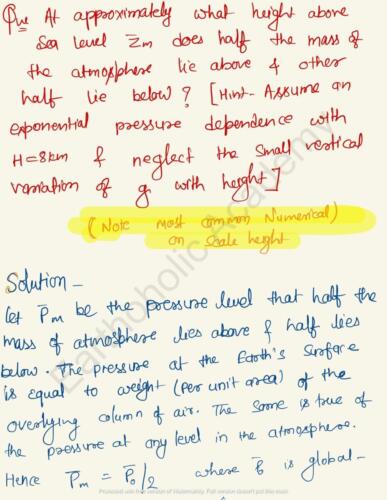 Que At approximately what height above
Sea level Z̄m does half the mass of
the atmosphere lie above & other
half lie below? [Hint- Assume an
exponential pressure dependence with
H=8km & neglect the small vertical
variation of g with height]
(Note most common Numerical)
on scale height
Solution –
let P̄m be the pressure level that half the
mass of atmosphere lies above & half lies
below. The pressure at the Earth's surface
is equal to weight (per unit area) of the
overlying column of air. The same is true of
the pressure at any level in the atmosphere.
Hence P̄m = P̄o/2 where P̄o is global-
Earthoholic Academy
Protected with free version of Watermarkly. Full version doesn't put this mark.